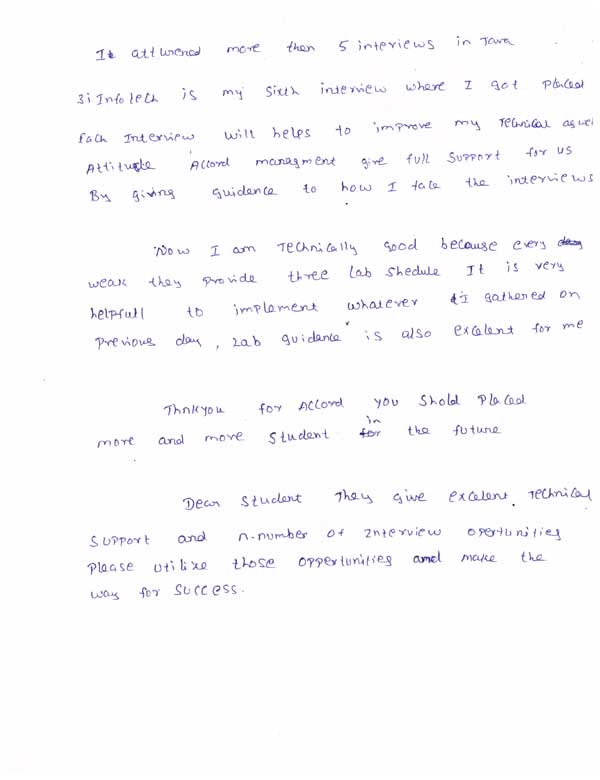 It atturened more then 5 interviews in Java
3i Infotech is my sixth interview where I got Placed
Each Interview will helps to improve my Technical as wel
Attitude Accord managment give full support for us
By giving guidence to how I face the interviews
Now I am Technically good because every
weak they provide three Lab Shedule It is very
helpfull to implement whatever I gathered on
Previous day, Lab guidence is also excelent for me
Thnkyou for Accord you Shold Placed
more and more Student in the future
Dear Student They give excelent Technical
Support and n-number of Interview opertunities
Please utilize those oppertunities and make the
way for success.